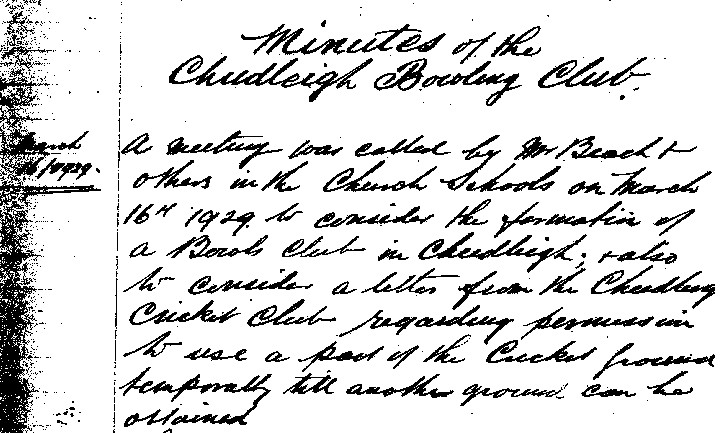 Minutes of the
Chudleigh Bowling Club.
March
16/1929.
A meeting was called by Mr Beach &
others in the Church Schools on March
16th 1929 to consider the formation of
a Bowls Club in Chudleigh; & also
to consider a letter from the Chudleigh
Cricket Club regarding permission
to use a part of the Cricket ground
temporally till another ground can be
obtained